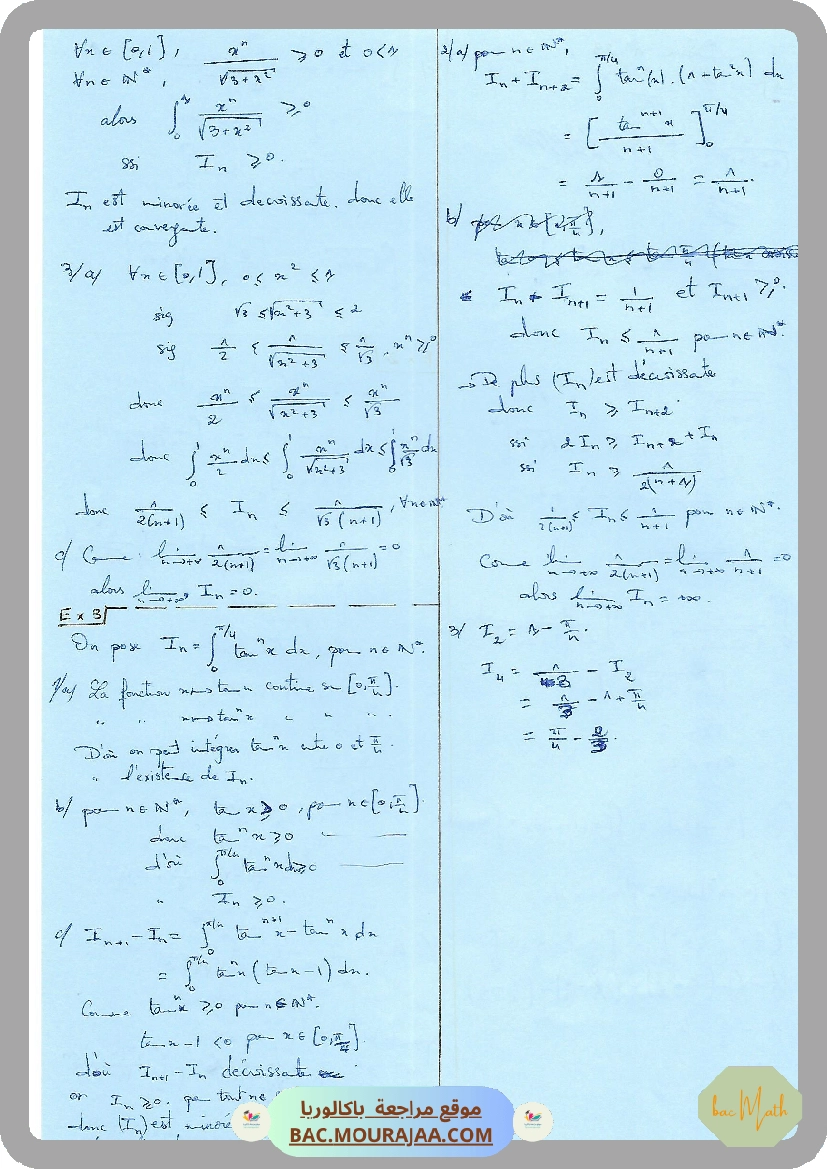 ∀x ∈ [0,1], x^n/√(3+x²) ≥ 0 et 0<1
∀n ∈ ℕ*,
alors ∫₀¹ x^n/√(3+x²) ≥ 0
ssi I_n ≥ 0.
I_n est minorée et decroissate, donc elle
est convergente.
3/a/ ∀x ∈ [0,1], 0 ≤ x² ≤ 1
sig √3 ≤ √(x²+3) ≤ 2
sig 1/2 ≤ 1/√(x²+3) ≤ 1/√3, x^n ≥ 0
donc x^n/2 ≤ x^n/√(x²+3) ≤ x^n/√3
donc ∫₀¹ x^n/2 dx ≤ ∫₀¹ x^n/√(x²+3) dx ≤ ∫₀¹ x^n/√3 dx
donc 1/(2(n+1)) ≤ I_n ≤ 1/(√3(n+1)), ∀n∈ℕ*
c/ Come lim n→+∞ 1/(2(n+1)) = lim n→+∞ 1/(√3(n+1)) = 0
alors lim n→+∞ I_n = 0.
Ex 3
On pose I_n = ∫₀^{π/4} tan^n x dx, pour n ∈ ℕ*.
1/a/ La fonction x↦tan x continue sur [0,π/4].
" " x↦tan^n x " " " "
D'où on peut intégrer tan^n x entre 0 et π/4.
" l'existence de I_n.
b/ pour n ∈ ℕ*, tan x ≥ 0, pour x ∈ [0,π/4]
donc tan^n x ≥ 0
d'où ∫₀^{π/4} tan^n x dx ≥ 0
" I_n ≥ 0.
c/ I_{n+1} - I_n = ∫₀^{π/4} tan^{n+1} x - tan^n x dx
= ∫₀^{π/4} tan^n x (tan x - 1) dx.
Comme tan^n x ≥ 0 pour n ∈ ℕ*.
tan x - 1 < 0 pour x ∈ [0,π/4]
d'où I_{n+1} - I_n décroissate
or I_n ≥ 0. pour tout n ∈
donc (I_n) est minorée
2/a/ pour n ∈ ℕ*,
I_n + I_{n+2} = ∫₀^{π/4} tan^n(x).(1+tan²x) dx
= [tan^{n+1} x/(n+1)]₀^{π/4}
= 1/(n+1) - 0/(n+1) = 1/(n+1).
b/
I_n + I_{n+1} = 1/(n+1) et I_{n+1} ≥ 0.
donc I_n ≤ 1/(n+1) pour n ∈ ℕ*.
→ De plus (I_n) est décroissate
donc I_n ≥ I_{n+2}
ssi 2I_n ≥ I_{n+2} + I_n
ssi I_n ≥ 1/(2(n+1))
D'où 1/(2(n+1)) ≤ I_n ≤ 1/(n+1) pour n ∈ ℕ*.
Come lim n→+∞ 1/(2(n+1)) = lim n→+∞ 1/(n+1) = 0
alors lim n→+∞ I_n = +∞.
3/ I_2 = 1 - π/4.
I_4 = 1/3 - I_2
= 1/3 - 1 + π/4
= π/4 - 2/3.
موقع مراجعة باكالوريا
BAC.MOURAJAA.COM
bac Math